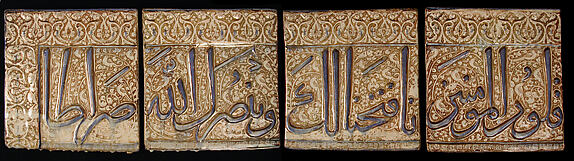 قلوب المؤمنين نا فتحنا لك وينصرك الله صراطا